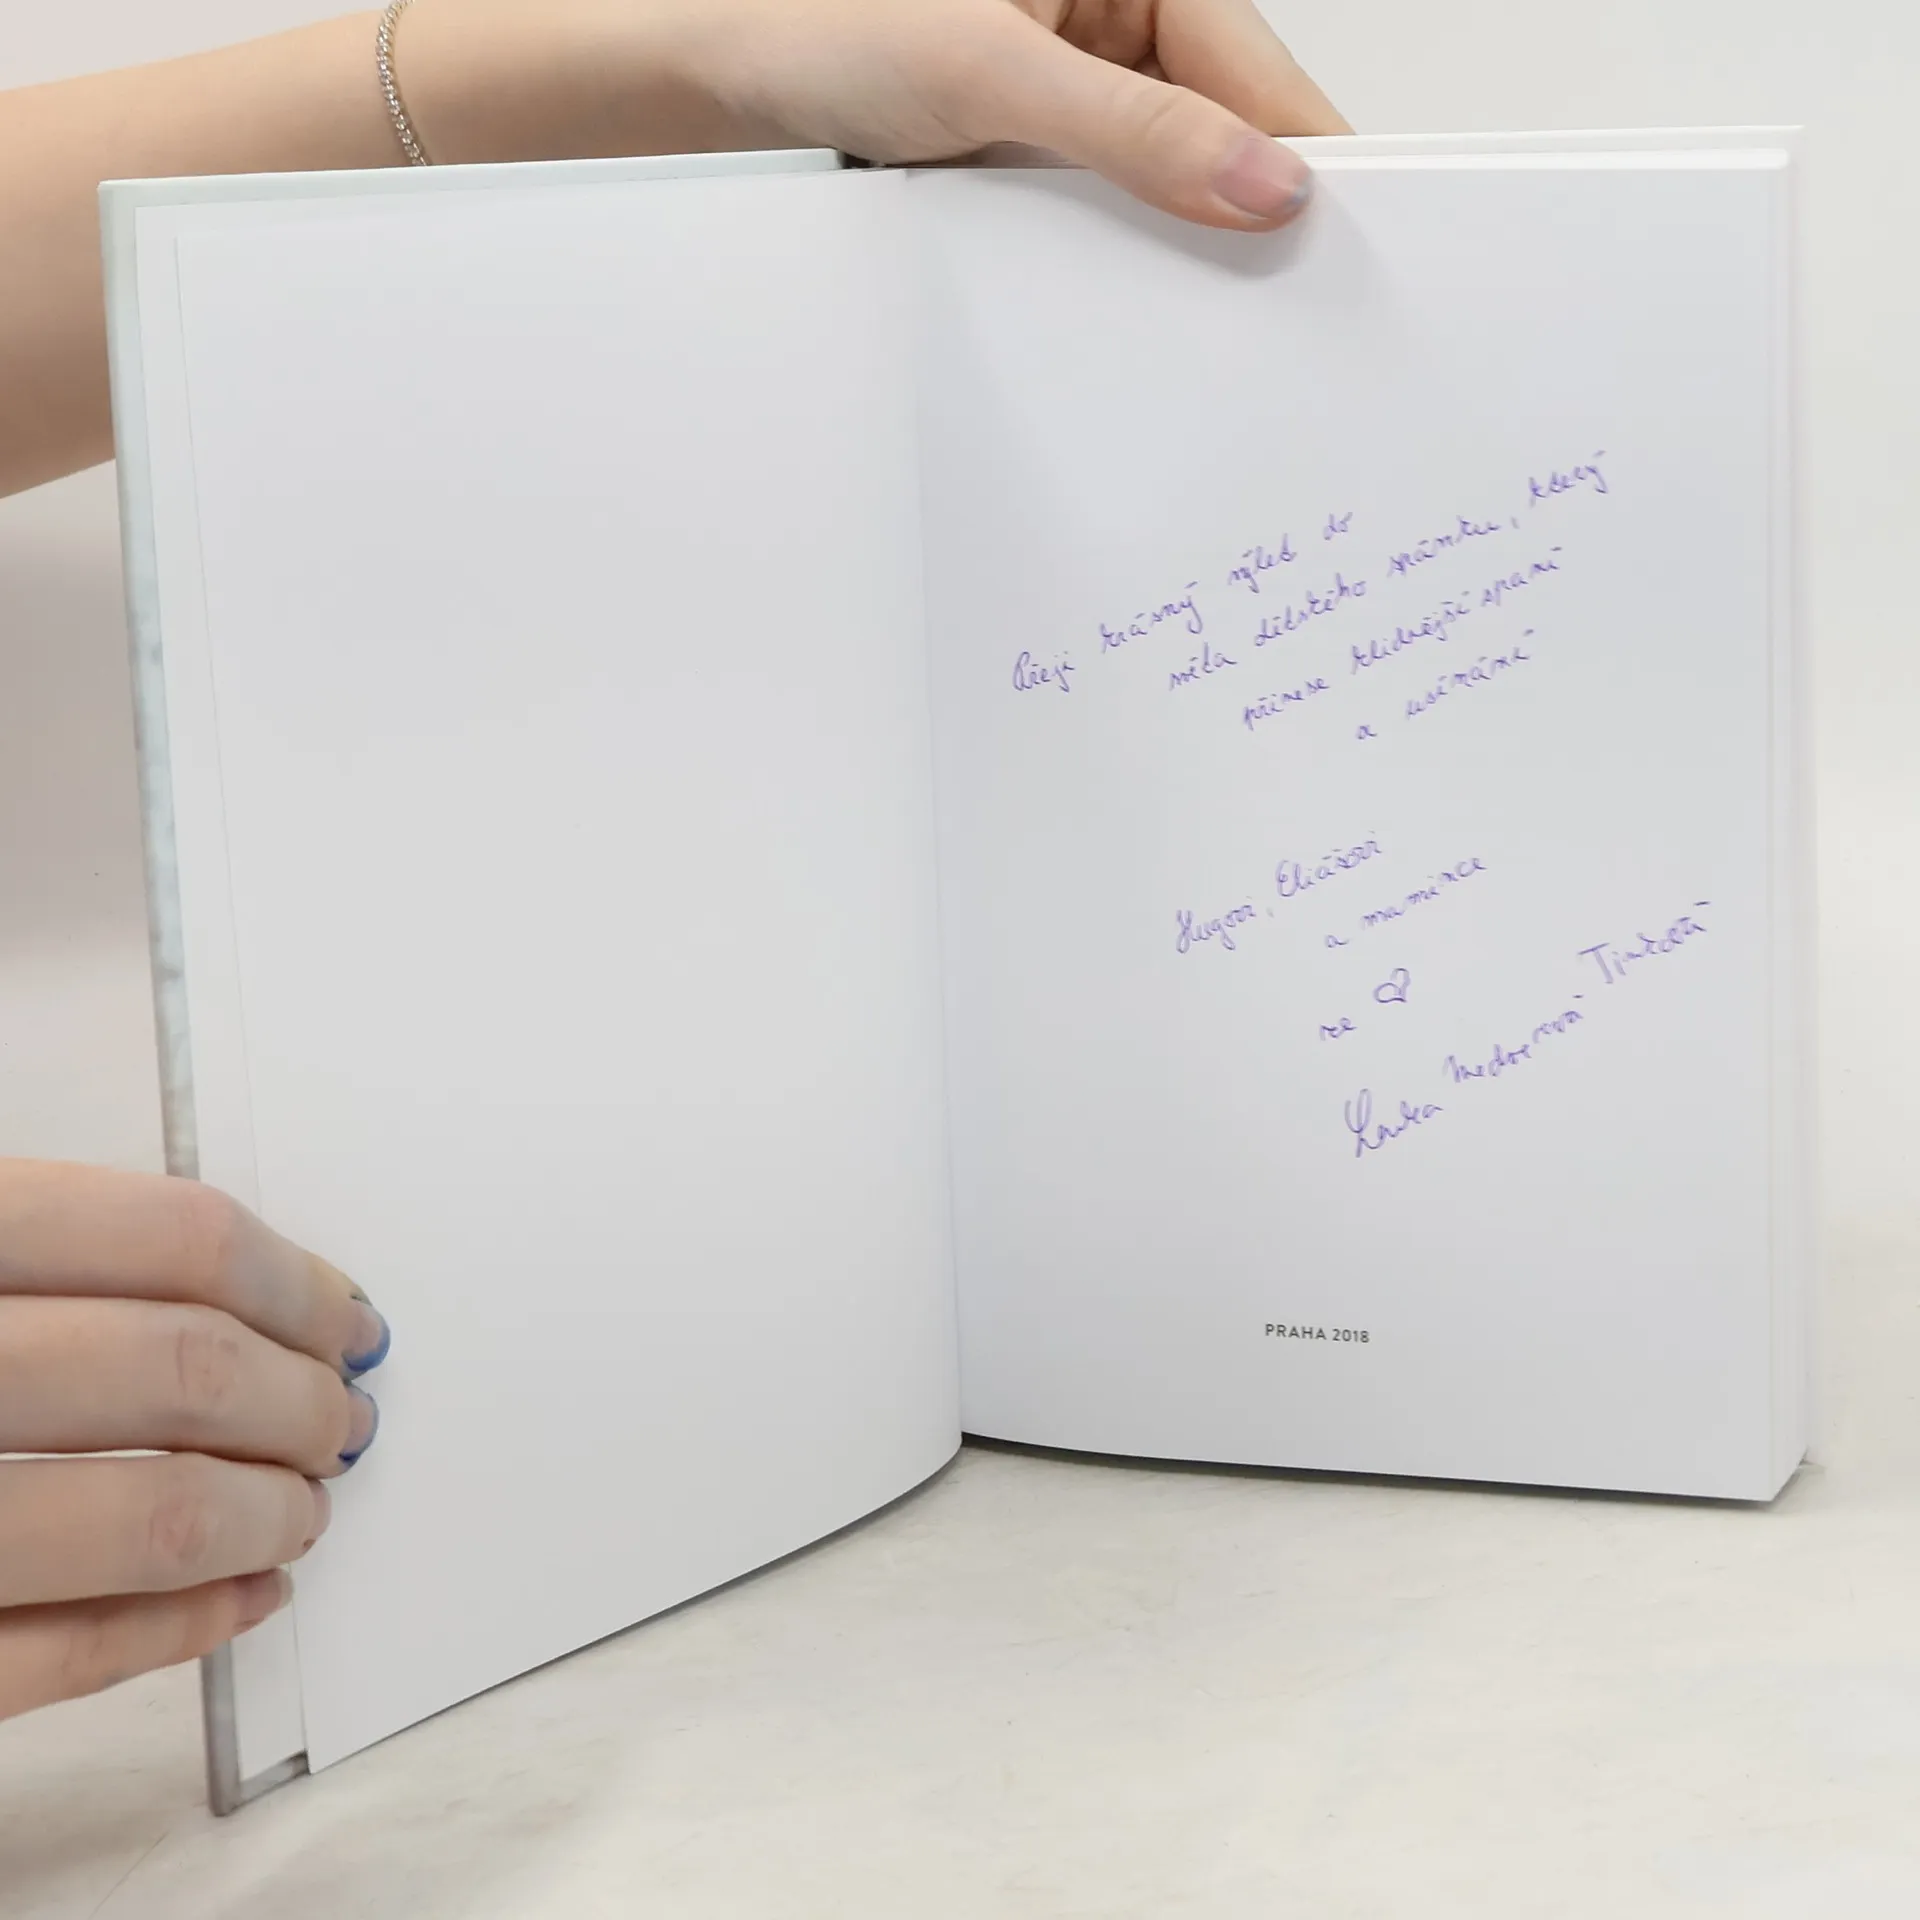 Přeji krásný výlet do
světa dětského spánku, který
přinese klidnější spaní
a usínání
Hugovi, Eliášovi
a mamince
ze ♡
Lenka Medvecová Tinková
PRAHA 2018